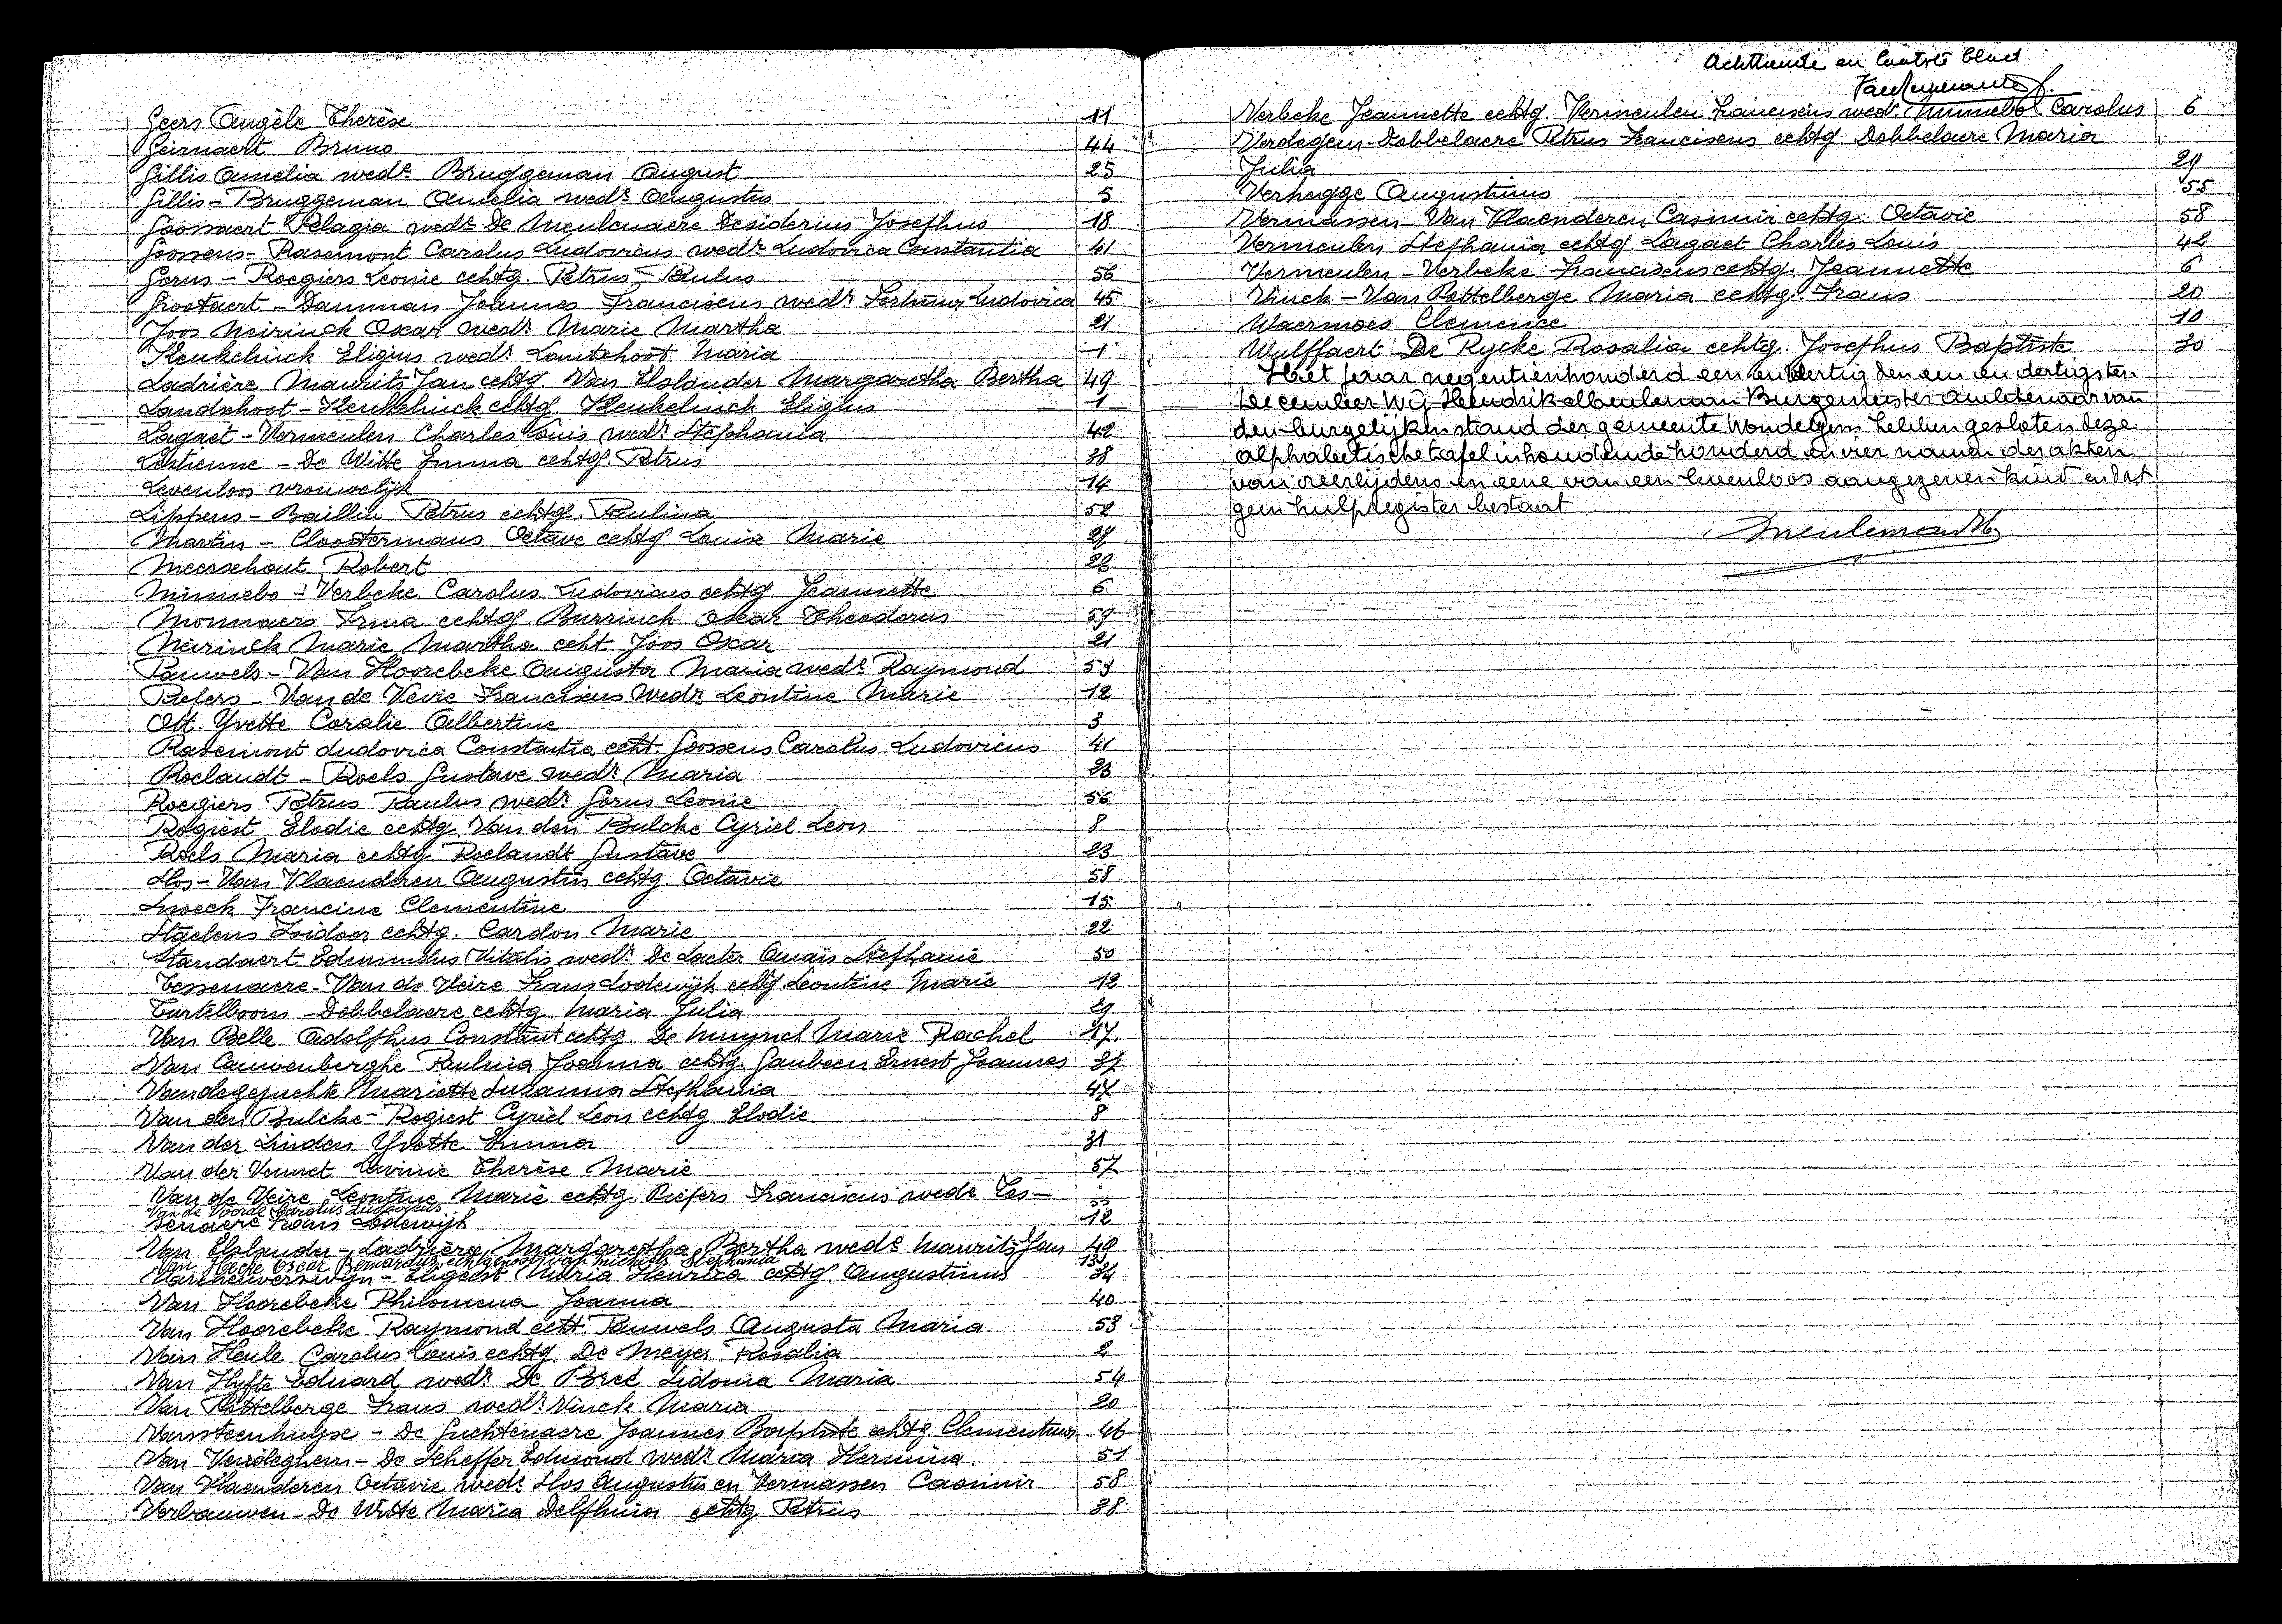 Geers Angèle Therèse 11
Geirnaert Bruno 44
Gillis Amelia wedᵉ Bruggeman August 25
Gillis - Bruggeman Amelia wedʳ Augustus 5
Goossaert Pelagia wedᵉ De Meulenaere Desiderius Josephus 18
Goossens - Rasemont Carolus Ludovicus wedʳ Ludovica Constantia 41
Gorus - Roegiers Leonie echtg. Petrus - Paulus 56
Grootaert - Damman Joannes Franciscus wedʳ Ludovica 45
Joos Neirinck Oscar wedʳ Marie Martha 21
Keukelinck Eligius wedʳ Lantschoot Maria 1
Ladrière Maurits Jan echtg. Van Elslander Margaretha Bertha 49
Landschoot - Keukelinck echtg. Keukelinck Eligius 1
Lagaet - Vermeulen Charles Louis wedʳ Stephania 42
Lestienne - De Witte Emma echtg. Petrus 38
Levenloos vrouwelijk 14
Lippens - Baillin Petrus echtg. Paulina 52
Martin - Cloostermans Octave echtg. Louise Marie 27
Meerschout Robert 26
Minnebo - Verbeke Carolus Ludovicus echtg. Jeannette 6
Monnaers Irma echtg. Burrinck Oscar Theodorus 59
Neirinck Marie Martha echt. Joos Oscar 21
Pauwels - Van Hoorebeke Augusta Maria wedᵉ Raymond 53
Piefers - Van de Veire Franciscus wedʳ Leontine Marie 12
Ott. Yvette Coralie Albertine 3
Rasemont Ludovica Constantia echt. Goossens Carolus Ludovicus 41
Roelandt - Roels Gustave wedʳ Maria 23
Roegiers Petrus Paulus wedʳ Gorus Leonie 56
Rogiest Elodie echtg. Van den Bulcke Cyriel Leon 8
Roels Maria echtg. Roelandt Gustave 23
Slos - Van Vlaenderen Augustus echtg. Octavie 58
Snoeck Francine Clementine 15
Staelens Isidoor echtg. Cardon Marie 22
Standaert Edmundus Vitalis wedʳ De Laeter Anaïs Stephanie 50
Tessenaere - Van de Veire Frans Lodewijk echtg. Leontine Marie 12
Turtelboom - Dobbelaere echtg. Maria Julia 29
Van Belle Adolphus Constant echtg. De Muynck Marie Rachel 17
Van Cauwenberghe Paulina Joanna echtg. Gaubeen Ernest Joannes 37
Vandegejuchte Mariette Suzanna Stephania 47
Van den Bulcke - Rogiest Cyriel Leon echtg. Elodie 8
Van der Linden Yvette Emma 31
Van der Vennet Lavinie Therèse Marie 57
Van de Veire Leontine Marie echtg. Piefers Franciscus wedᵉ Tes-
Van de Voorde Carolus Ludovicus 55
senaere Frans Lodewijk 12
Van Elslander - Ladrière Margaretha Bertha wedᵉ Maurits Jan 49
Van Hecke Oscar Bernardijn echtgenoot van Michiels Stephania 13
Vareneuverswijn - Eligeest Maria Henrica echtg. Augustinus 34
Van Hoorebeke Philomena Joanna 40
Van Hoorebeke Raymond echt. Pauwels Augusta Maria 53
Van Heule Carolus Louis echtg. De Meyer Rosalia 2
Van Hyfte Eduard wedʳ De Bree Sidonia Maria 54
Van Pottelberge Frans wedʳ Vinck Maria 20
Vansteenhuyse - De Guchtenaere Joannes Baptiste echtg. Clementina 46
Van Verdeghem - De Scheffer Edmond wedʳ Maria Hermina. 51
Van Vlaenderen Octavie wedᵉ Slos Augustus en Vermassen Casimir 58
Verbauwen - De Witte Maria Delphina echtg. Petrus 38
Achttiende en laatste blad
Verbeke Jeannette echtg. Vermeulen Franciscus wedᵉ Minnebo Carolus 6
Verdegem - Dobbelaere Petrus Franciscus echtg. Dobbelaere Maria
Julia 29
Verhegge Augustinus 55
Vermassen - Van Vlaenderen Casimir echtg. Octavie 58
Vermeulen Stephania echtg. Lagaet Charles Louis 42
Vermeulen - Verbeke Franciscus echtg. Jeannette 6
Vinck - Van Pottelberge Maria echtg. Frans 20
Waermoes Clemence 10
Wulffaert - De Rycke Rosalia echtg. Josephus Baptiste 30
Het jaar negentienhonderd een en dertig den een en dertigsten
december Wij Hendrik Meuleman Burgemeester ambtenaar van
den burgelijken stand der gemeente Wondelgem hebben gesloten deze
alphabetische tafel inhoudende honderd en vier namen der akten
van overlijdens en eene van een levenloos aangegeven kind en dat
geen hulpregister bestaat
Meuleman H.